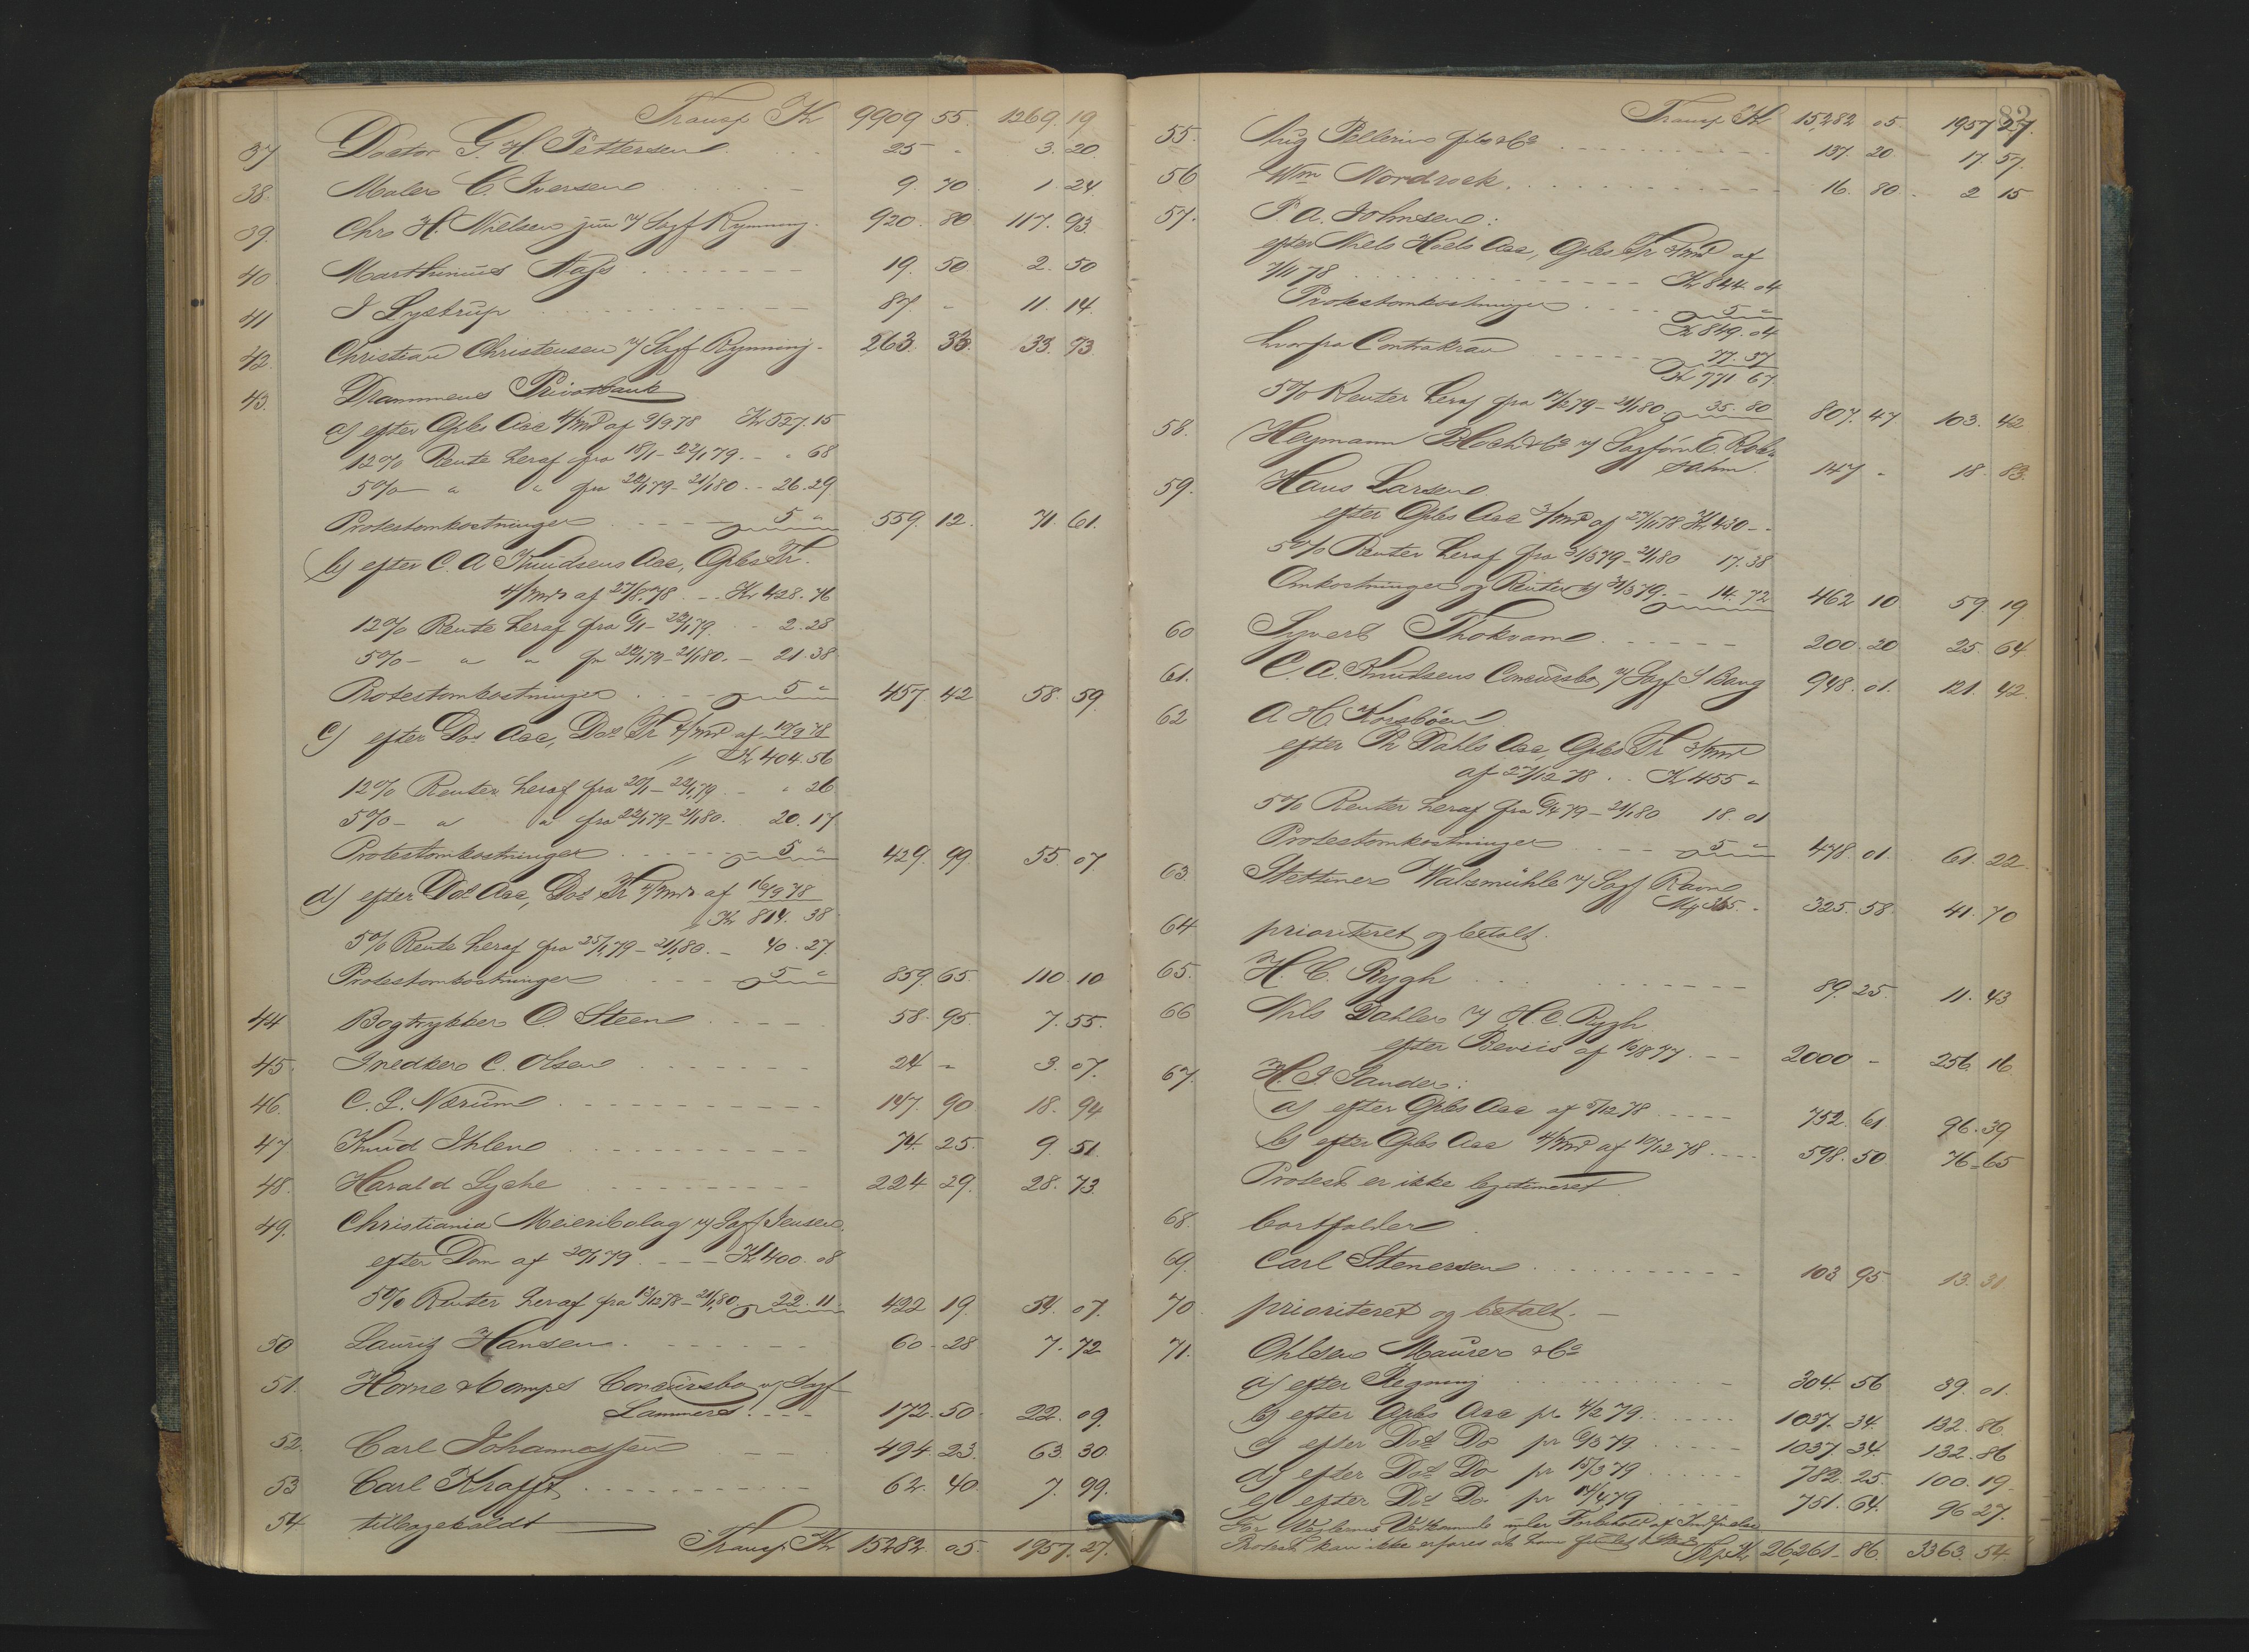 Transp Kr 9909 55. 1269. 19
37 Doctor G. H. Pettersen 25 - 3. 20
38. Maler C. Iversen 9. 70 1. 24
39. Chr. H. Nielsen jun v/ Sagf Rynning. 920. 80 117. 93
40 Marthinius 19. 50 2. 50
41 J Lystrup 87. - 11. 14.
42. Christian Christensen v/ Sagf Rynning. 263. 33. 33. 93
43. Drammens Privatbank
a) efter Gbles Acc 4/md af 9/9 78 Kr 527. 15
12% Rente heraf fra 18/1 - 22/1 79. - " 68
5% - " " fra 22/1 79 - 21/1 80. - 26. 29
Protestomkostninger 5 " 559. 12. 71. 61.
b) efter C. A Knudsens Acc, Gbles Tr.
4/md af 27/8. 78. - Kr 428. 76
12% Rente heraf fra 6/1 - 22/1 79. 2. 28
5% - " " fr 22/1 79 - 21/1 80. - 21. 38
Protestomkostninger 5 " 457. 42 58. 59.
c) efter Dos Acc, Dos Tr 4/md af 10/9 78
Kr 404. 56
12% Renter heraf fra 20/1 - 22/1 79 - " 26
5% - " " fra 22/1 79 - 21/1 80. 20. 17
Protestomkostninger 5 " 429. 99. 55. 07
d) efter Dos Acc, Dos Tr 4/md af 16/9 78
Kr 814. 38
5% Rente heraf fra 25/1 79 - 21/1 80. - 40. 27.
Protestomkostninger 5 " 859. 65 110. 10
44 Bogtrykker O. Steen 58. 95 7. 55.
45. Snedker C. Olsen 24 - 3. 07.
46. C. L. Nærum 147. 90 18. 94
47 Knud Ihlen 74. 25. 9. 51.
48. Harald Lyche 224 29. 28. 73.
49. Christiania Meieribolag v/ Sagf Jensen.
efter Dom af 20/1 79 - - - Kr 400. 08
5% Renter heraf fra 13/12 78 - 21/1 80 22. 11. 422 19. 54. 07.
50 Lauritz Hansen 60 - 28 7. 72
51. Horne & Comps Concursbo v/ Sagf
Lammers. 172. 50 22. 09.
52. Carl Johannessen 494. 23. 63. 30
53 Carl Krafft 62. 40. 7. 99.
54 tilbagekaldt
Transp. Kr 15282. 05. 1957. 27.
82
Transp Kr 15,282 05. 1957 27.
55. Aug Pellerin fils & Co 137. 20 17. 57.
56 Wm Nordrock 16. 80. 2 15
57. P. A. Johnsen:
efter Niels Hoels Acc, Gbles Tr 3/md af
7/11 78 Kr 844. 04
Protestomkostninger 5 "
Kr 849. 04
hvorfra Contrakrav 77. 37
Kr 771 67
5% Renter heraf fra 17/2 79 - 21/1 80 35. 80 807. 47 103. 42
58. Heymann Bloch & Co v/ Sagfører E. Rob
sahm 147 - 18. 83.
59. Hans Larsen
efter Gbles Acc 3/md af 27/11 78 Kr 430 - -
5% Renter heraf fra 31/3 79 - 21/1 80 17. 38
Omkostninger og Renter til 31/3 79. - 14. 72 462 10 59. 19
60 Syvert Thokvam 200. 20 25. 64
61. C. A. Knudsens Concursbo v/ Sagf S Bang 948. 01. 121. 42
62 A H. Korsbøen
efter Th Dahls Acc, Gbles Tr 3/md
af 27/12 78. . Kr 455 "
5% Renter heraf fra 6/4 79 - 21/1 80 18. 01
Protestomkostninger 5 " 478. 01. 61. 22
63. Stettiner Walzmühle v/ Sagf Ravn
Mk 365. - 325. 58. 41. 70
64 prioriteret og betalt.
65. H. C. Rygh 89. 25. 11. 43
66 Nils Dahler v/ H. C. Rygh
efter Beviis af 16/8 77. - - 2000 - 256. 16
67. H. J. Sander:
a) efter Gbles Acc af 5/12 78 752. 61 96. 39
b) efter Gbles Acc 4/md af 10/12 78 598. 50 76. 65
Protest er ikke legitimeret
68. bortfalder
69. Carl Stenersen 103 95 13. 31
70. prioriteret og betalt. -
71. Ohlsen Maurer & Co
a) efter Regning 304. 56 39. 01.
b) efter Gbles Acc pr 4/2 79. 1037. 34. 132. 86.
c) efter Dos Do pr 6/3 79. 1037. 34. 132. 86
d) efter Dos Do pr 15/3 79 782. 25. 100. 19
e) efter Dos Do pr 14/4 79 751. 64. 96 27.
For Vexlernes Vedkommende under Forbehold af
Protest kan ikke erfares at have fundet Sted
Trp Kr 26,261 - 86. 3363. 54